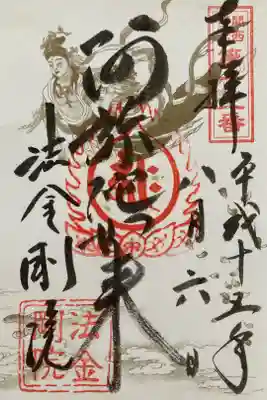 奉拝
平成十五年
八月二六日
阿弥陀如来
法金剛院
法金
剛院